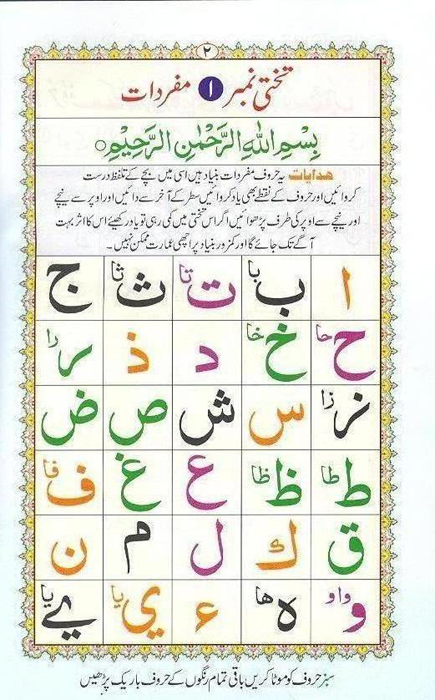 ۲
تختی نمبر ۱ مفردات
بِسْمِ اللهِ الرَّحْمٰنِ الرَّحِیْمِ
ھدایات یہ حروف مفردات بنیاد ہیں اسی میں بچے کے تلفظ درست
کروائیں اور حروف کے نقطے بھی یاد کروائیں سطر کے آخر سے دائیں اور اوپر سے نیچے
اور نیچے سے اوپر کی طرف پڑھوائیں اگر اس تختی میں کمی رہی تو یاد رکھیئے اس کا اثر بہت
آگے تک جائے گا اور کمزور بنیاد پر اچھی عمارت ممکن نہیں۔
ا ب با ت تا ث ثا ج
ح حا خ خا د ذ ر را
ز زا س ش ص ض
ط طا ظ ظا ع غ ف فا
ق ك ل م ن
و واو ه ها ء ي یا ے یا
سبز حروف کو موٹا کریں باقی تمام رنگوں کے حروف باریک پڑھیں